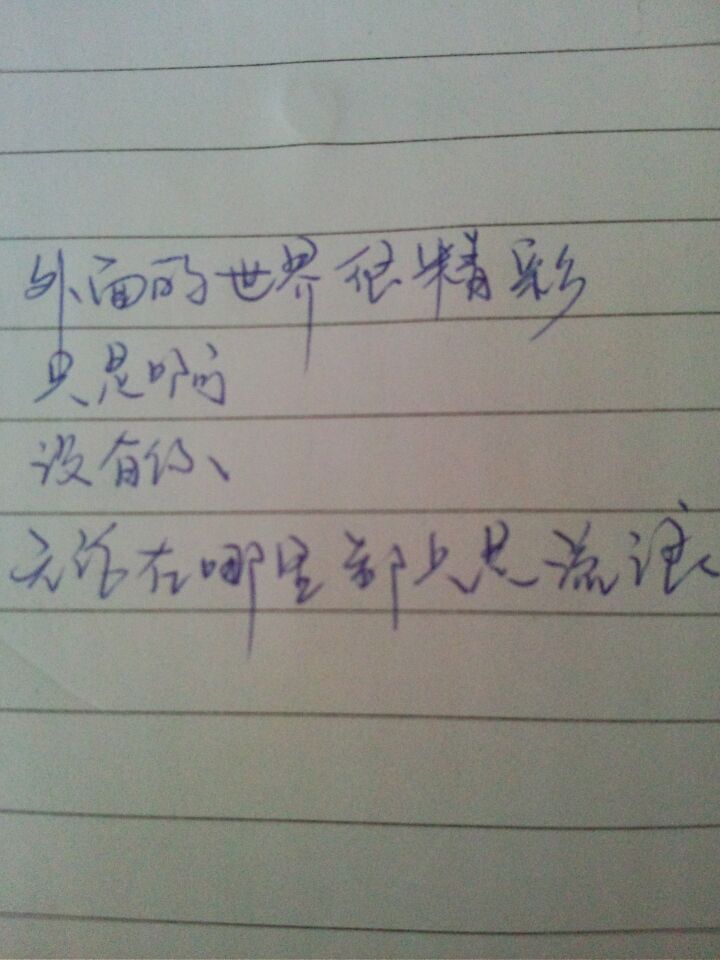 外面的世界很精彩
只是啊
没有你、
无论在哪里都只是流浪